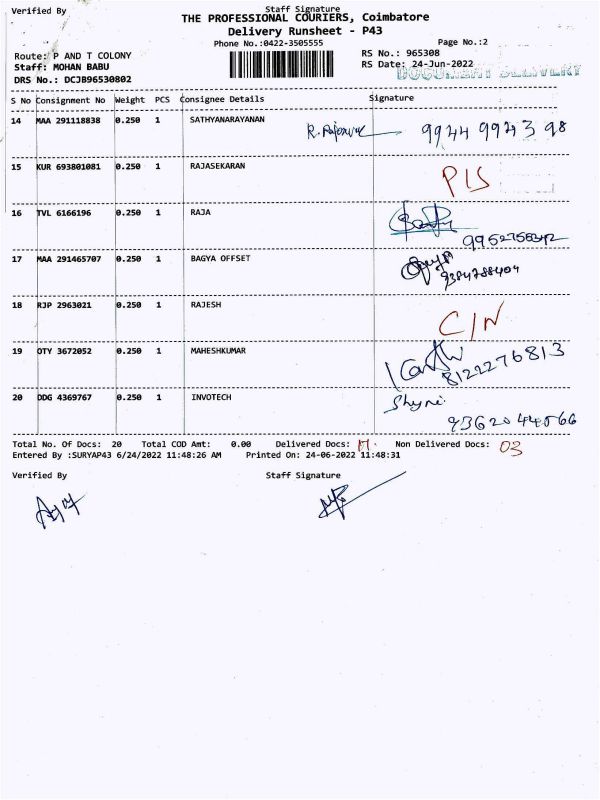 Verified By Staff Signature
THE PROFESSIONAL COURIERS, Coimbatore
Delivery Runsheet - P43
Phone No.:0422-3505555 Page No.:2
Route: P AND T COLONY RS No.: 965308
Staff: MOHAN BABU RS Date: 24-Jun-2022
DOCUMENT DELIVERY
DRS No.: DCJB96530802
S No Consignment No Weight PCS Consignee Details Signature
14 MAA 291118838 0.250 1 SATHYANARAYANAN 99449943 98
15 KUR 693801081 0.250 1 RAJASEKARAN P/S
16 TVL 6166196 0.250 1 RAJA
17 MAA 291465707 0.250 1 BAGYA OFFSET
18 RJP 2963021 0.250 1 RAJESH C/N
19 OTY 3672052 0.250 1 MAHESHKUMAR 8122276813
20 DDG 4369767 0.250 1 INVOTECH
9362044566
Total No. Of Docs: 20 Total COD Amt: 0.00 Delivered Docs: 17. Non Delivered Docs: 03
Entered By :SURYAP43 6/24/2022 11:48:26 AM Printed On: 24-06-2022 11:48:31
Verified By Staff Signature